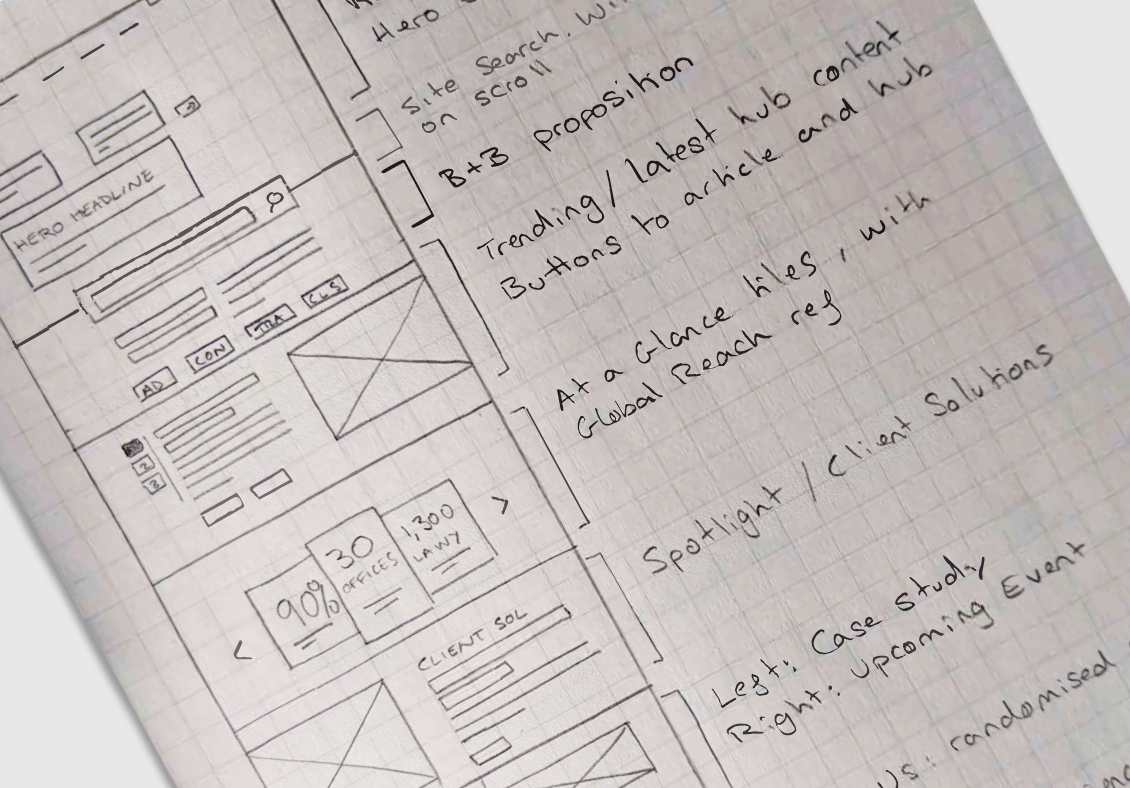 Hero
Site Search. Wi
on scroll
B+B proposition
Trending/latest hub content
Buttons to article and hub
At a Glance tiles, with
Global Reach ref
Spotlight / Client Solutions
Left: Case study
Right: Upcoming Event
Us: randomised
HERO HEADLINE
AD
CON
TRA
CLS
2
3
90%
30
OFFICES
1,300
LAWY
CLIENT SOL